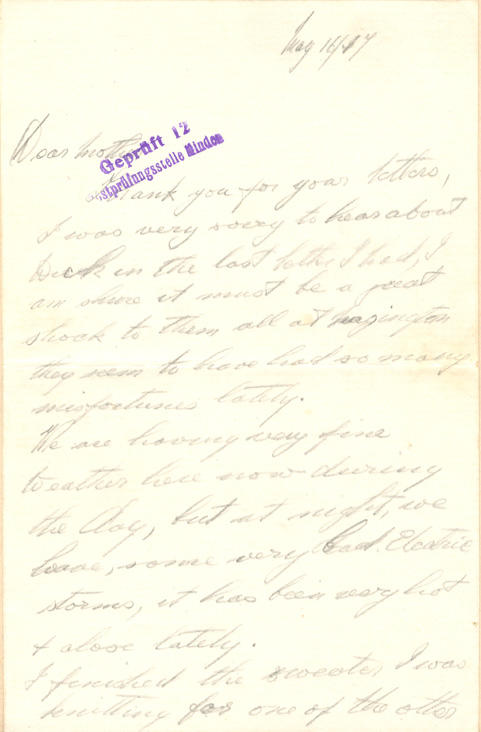 May 16/17
Dear Mother
Geprüft 12
Postprüfungsstelle Minden
Thank you for your letters,
I was very sorry to hear about
Dick in the last letter I had, I
am shure it must be a great
shock to them all at
they seem to have had so many
misfortunes lately.
We are having very fine
weather here now during
the day, but at night, we
have, some very bad Electric
storms, it has been very hot
& close lately.
I finished the sweater I was
knitting for one of the other